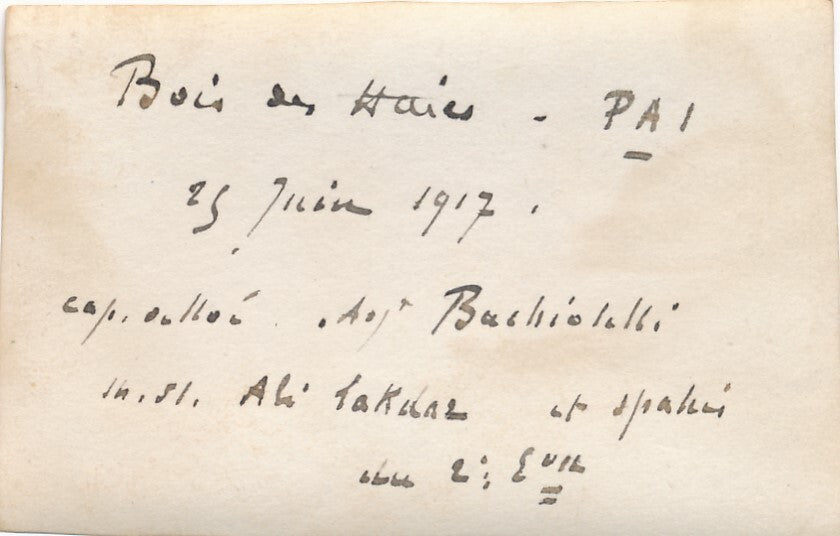 Bois des Haies - PA 1
25 Juin 1917.
cap. Adjt Bachioletti
m.d.l. Ali Lakdar et spahis
du 2e Eon